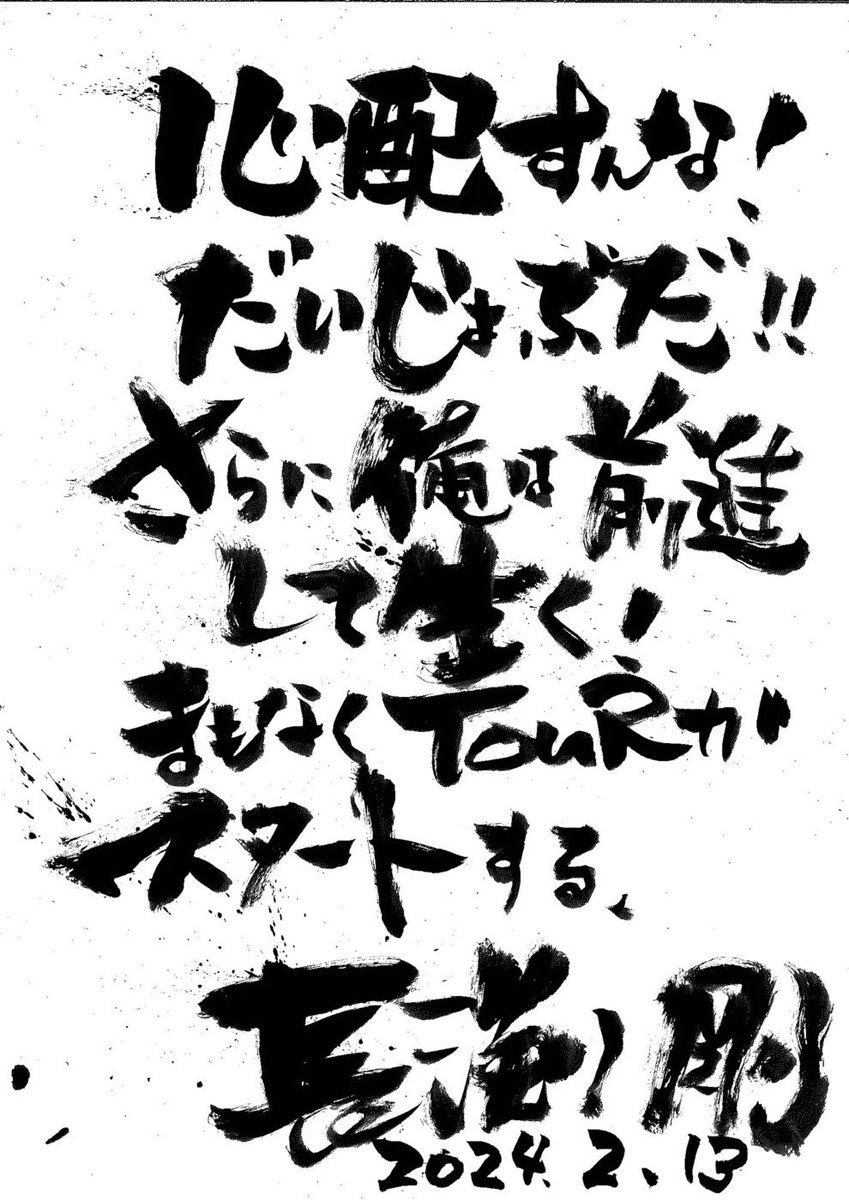 心配すんな!
だいじょぶだ!!
さらに俺は前進
して生く!
まもなくTouRが
スタートする、
長渕剛
2024.2.13